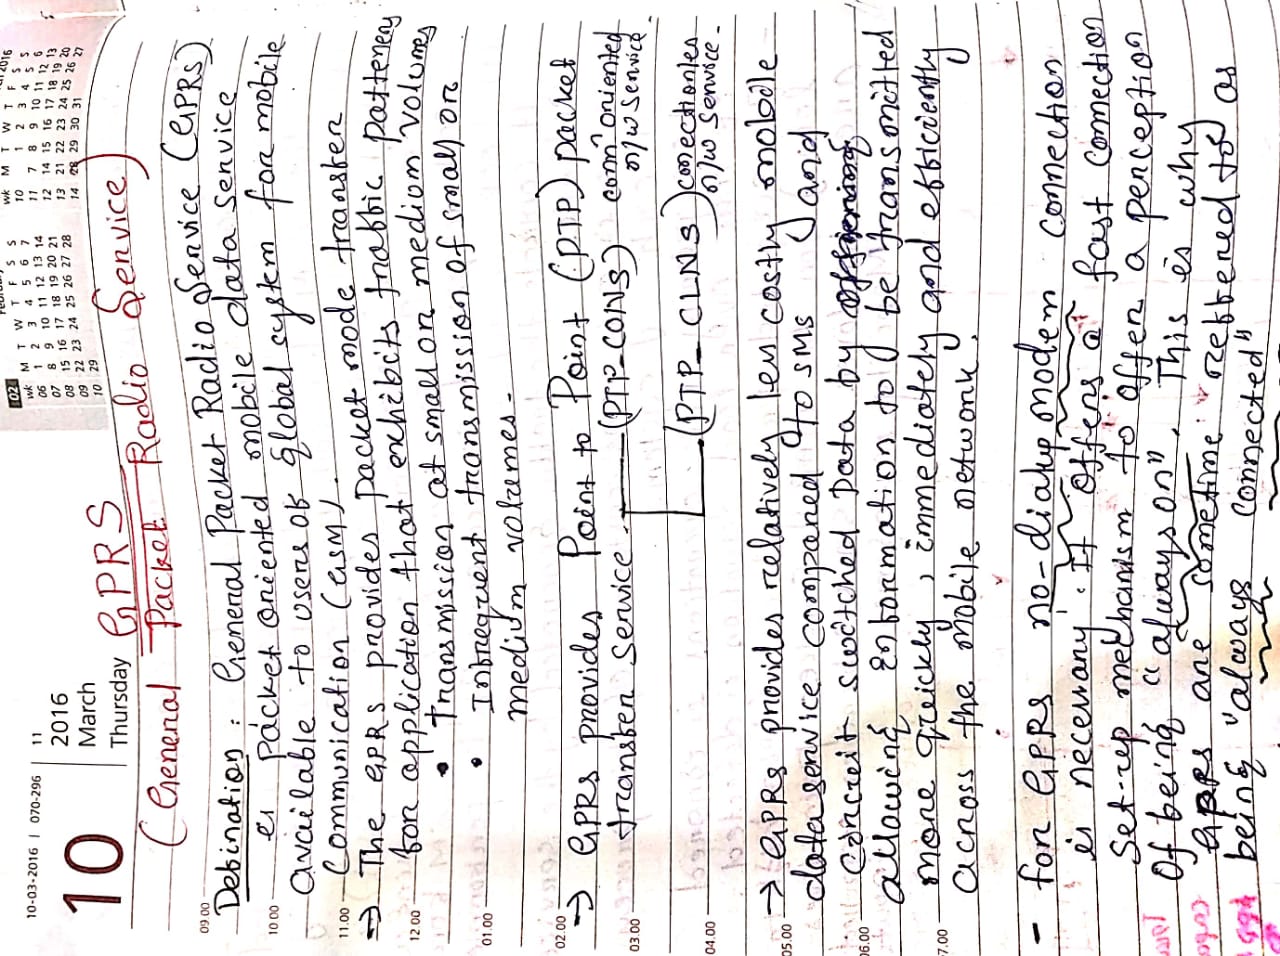 10-03-2016 | 070-296 | 11
10
2016
March
Thursday
02
wk M T W T F S S
06 1 2 3 4 5 6 7
07 8 9 10 11 12 13 14
08 15 16 17 18 19 20 21
09 22 23 24 25 26 27 28
10 29
2016
wk M T W T F S S
10 1 2 3 4 5 6
11 7 8 9 10 11 12 13
12 14 15 16 17 18 19 20
13 21 22 23 24 25 26 27
14 28 29 30 31
GPRS
(General Packet Radio Service)
09.00
Defination : General Packet Radio Service (GPRS)
is packet oriented mobile data service
10.00
available to users of global system for mobile
Communication (GSM).
11.00
→ The GPRS provides packet mode transfer
for application that exhibits traffic patterns
12.00
• transmission of small or medium volumes
• Infrequent transmission of small or
01.00
medium volumes.
02.00
→ GPRS provides Point to Point (PTP) packet
transfer service. (PTP-CONS) comnⁿ oriented
03.00
n/w service.
(PTP-CLNS) conectionles
04.00
n/w service.
→ GPRS provides relatively less costly mobile
05.00
data service compared to SMS and
circuit switched Data by
06.00
allowing information to be transmitted
more quickly, immediately and efficiently
7.00
across the mobile network.
- for GPRS no-dialup modem connection
is necessary. It offers a fast connection
set-up mechanism to offer a perception
of being "always on". This is why
GPRS are sometime reffered to as
being "always connected"